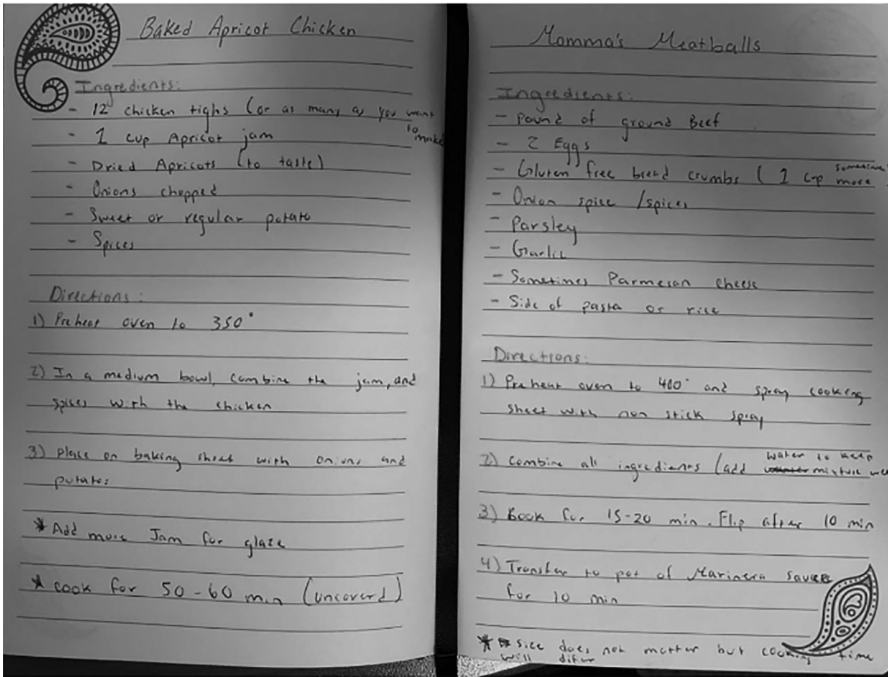 Baked Apricot Chicken
Ingredients:
- 12 chicken tighs (or as many as you want
to make
- 1 cup Apricot jam
- Dried Apricots (to taste)
- Onions chopped
- Sweet or regular potato
- Spices
Directions:
1) Preheat oven to 350°
2) In a medium bowl, combine the jam, and
spices with the chicken
3) Place on baking sheet with onions and
potatoes
* Add more Jam for glaze
* Cook for 50-60 min (uncoverd)
Momma's Meatballs
Ingredients:
- Pound of ground Beef
- 2 Eggs
- Gluten free bread crumbs (1 cup sometimes more
- Onion spice /spices
- Parsley
- Garlic
- Sometimes Parmesan cheese
- Side of pasta or rice
Directions:
1) Preheat oven to 400° and spray cooking
sheet with non stick spray
2) Combine all ingredients (add water to keep mixture wet
3) Book for 15-20 min. Flip after 10 min
4) Transfer to pot of Marinera sauce
for 10 min
* Size does not matter but cooking time
will difer